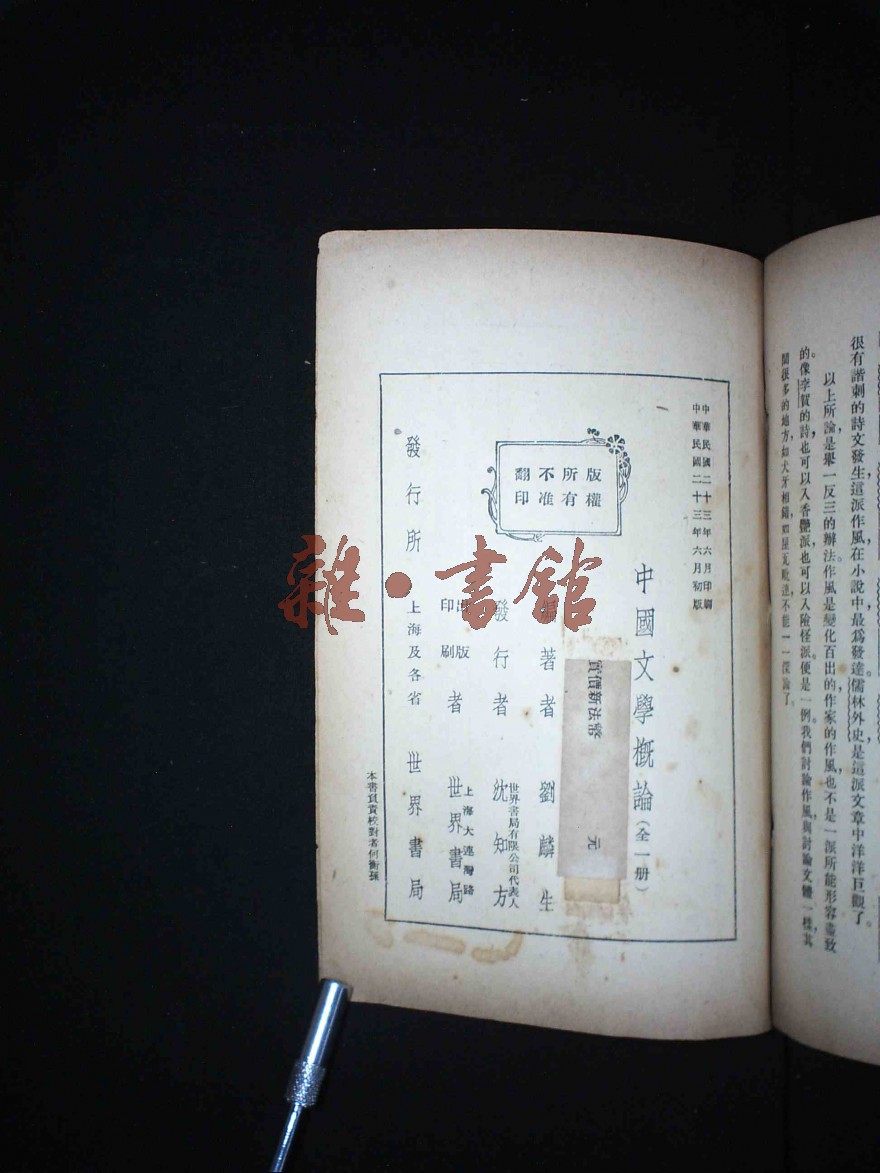 很有諧刺的詩文發生這派作風在小說中最爲發達儒林外史是這派文章中洋洋巨觀了。
以上所論是舉一反三的辦法作風是變化百出的作家的作風也不是一派所能形容盡致
的。像李賀的詩也可以入香艷派也可以入險怪派便是一例我們討論作風與討論文體一樣其
間很多的地方，如犬牙相錯，如屋瓦毗連，不能一一深論了。
中華民國二十三年六月印刷
中華民國二十三年六月初版
中國文學概論（全一册）
實價新法幣　元
版權所有
不准翻印
編著者　劉麟生
發行者　世界書局有限公司代表人　沈知方
出版印刷者　上海大連灣路　世界書局
發行所　上海及各省　世界書局
本書負責校對者何衡孫
雜·書館